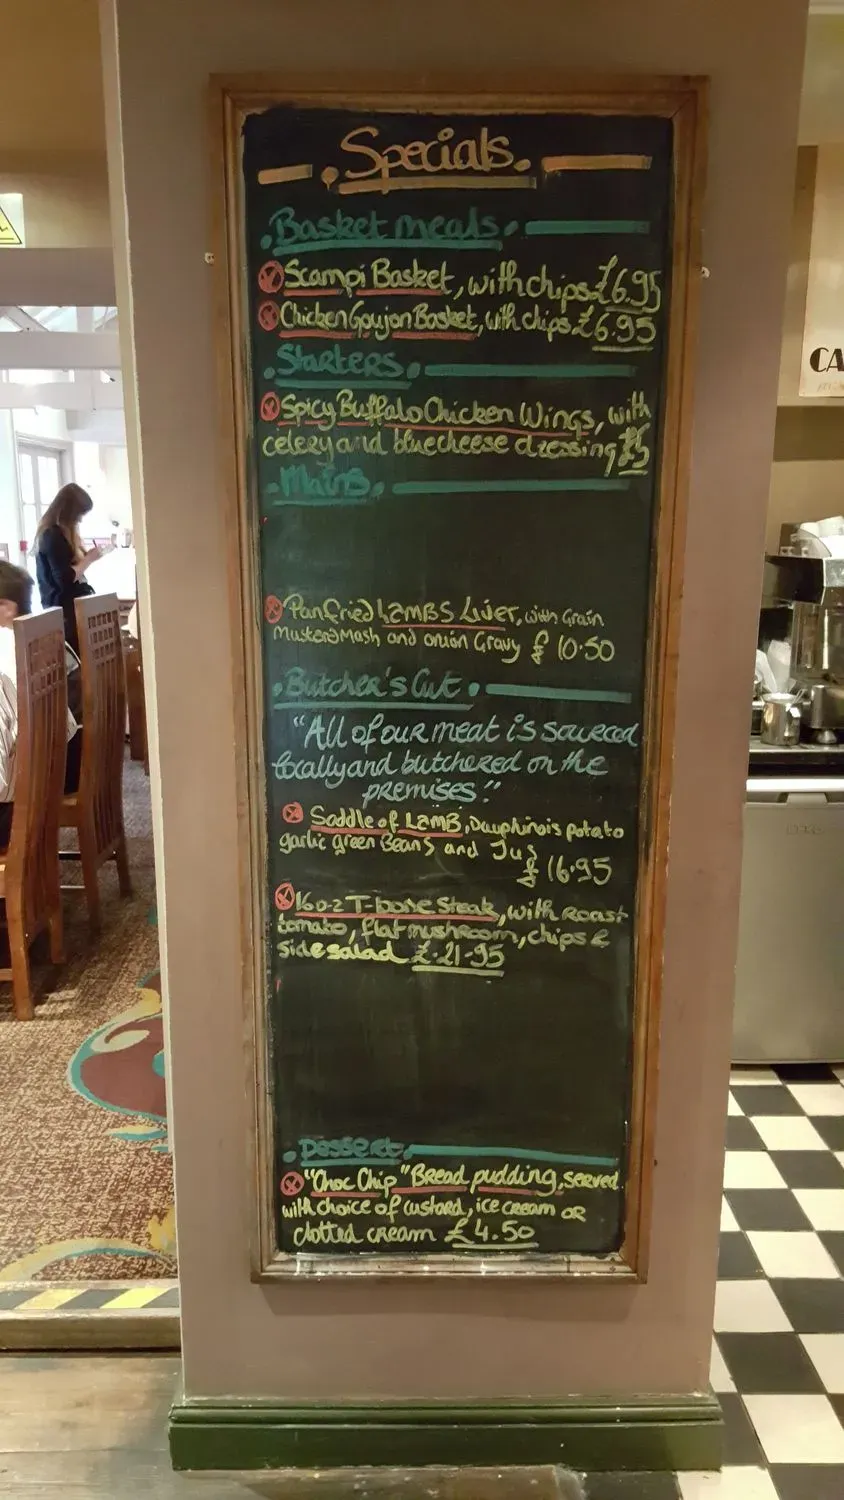 Specials.
Basket meals.
Scampi Basket, with chips £6.95
Chicken Goujon Basket, with chips £6.95
Starters.
Spicy Buffalo Chicken Wings, with
celery and bluecheese dressing £5
Mains.
Pan Fried Lambs Liver, with Grain
Mustard Mash and onion Gravy £ 10.50
Butcher's Cut.
"All of our meat is sourced
locally and butchered on the
premises."
Saddle of Lamb, Dauphinois potato
garlic green Beans and Jus
£ 16.95
16oz T-bone Steak, with roast
tomato, flat mushroom, chips &
side salad £.21-95
Dessert.
"Choc Chip" Bread pudding, served
with choice of custard, ice cream or
clotted cream £4.50
CA